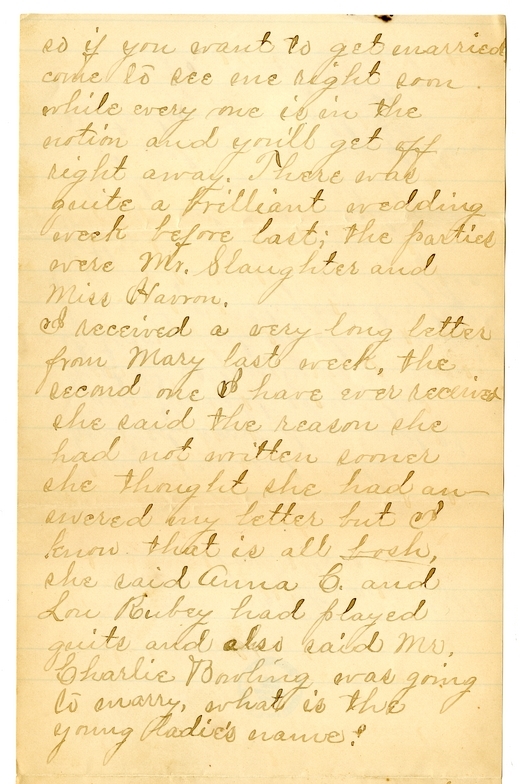 so if you want to get married
come to see me right soon
while every one is in the
notion and you'll get off
right away. There was
quite a brilliant wedding
week before last; the parties
were Mr. Slaughter and
Miss Havron.
I received a very long letter
from Mary last week, the
second one I have ever received
she said the reason she
had not written sooner
she thought she had an-
swered my letter but I
know that is all bosh,
she said Anna C. and
Lou Rubey had played
quits and also said Mr.
Charlie Bowling was going
to marry, what is the
young ladie's name?